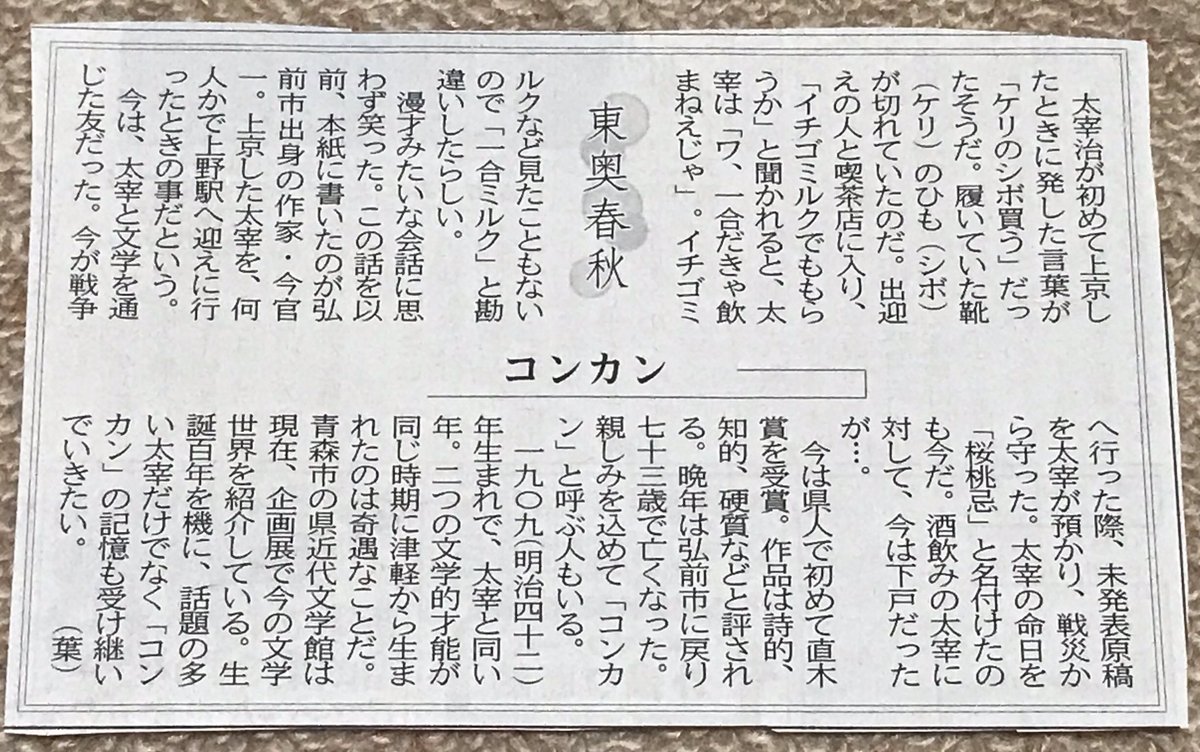 東奥春秋
コンカン
　太宰治が初めて上京し
たときに発した言葉が
「ケリのシボ買う」だっ
たそうだ。履いていた靴
（ケリ）のひも（シボ）
が切れていたのだ。出迎
えの人と喫茶店に入り、
「イチゴミルクでももら
うか」と聞かれると、太
宰は「ワ、一合だきゃ飲
まねえじゃ」。イチゴミ
ルクなど見たこともない
ので「一合ミルク」と勘
違いしたらしい。
　漫才みたいな会話に思
わず笑った。この話を以
前、本紙に書いたのが弘
前市出身の作家・今官
一。上京した太宰を、何
人かで上野駅へ迎えに行
ったときの事だという。
　今は、太宰と文学を通
じた友だった。今が戦争
へ行った際、未発表原稿
を太宰が預かり、戦災か
ら守った。太宰の命日を
「桜桃忌」と名付けたの
も今だ。酒飲みの太宰に
対して、今は下戸だった
が…。
　今は県人で初めて直木
賞を受賞。作品は詩的、
知的、硬質などと評され
る。晩年は弘前市に戻り
七十三歳で亡くなった。
親しみを込めて「コンカ
ン」と呼ぶ人もいる。
　一九〇九（明治四十二）
年生まれで、太宰と同い
年。二つの文学的才能が
同じ時期に津軽から生ま
れたのは奇遇なことだ。
青森市の県近代文学館は
現在、企画展で今の文学
世界を紹介している。生
誕百年を機に、話題の多
い太宰だけでなく「コン
カン」の記憶も受け継い
でいきたい。
（葉）